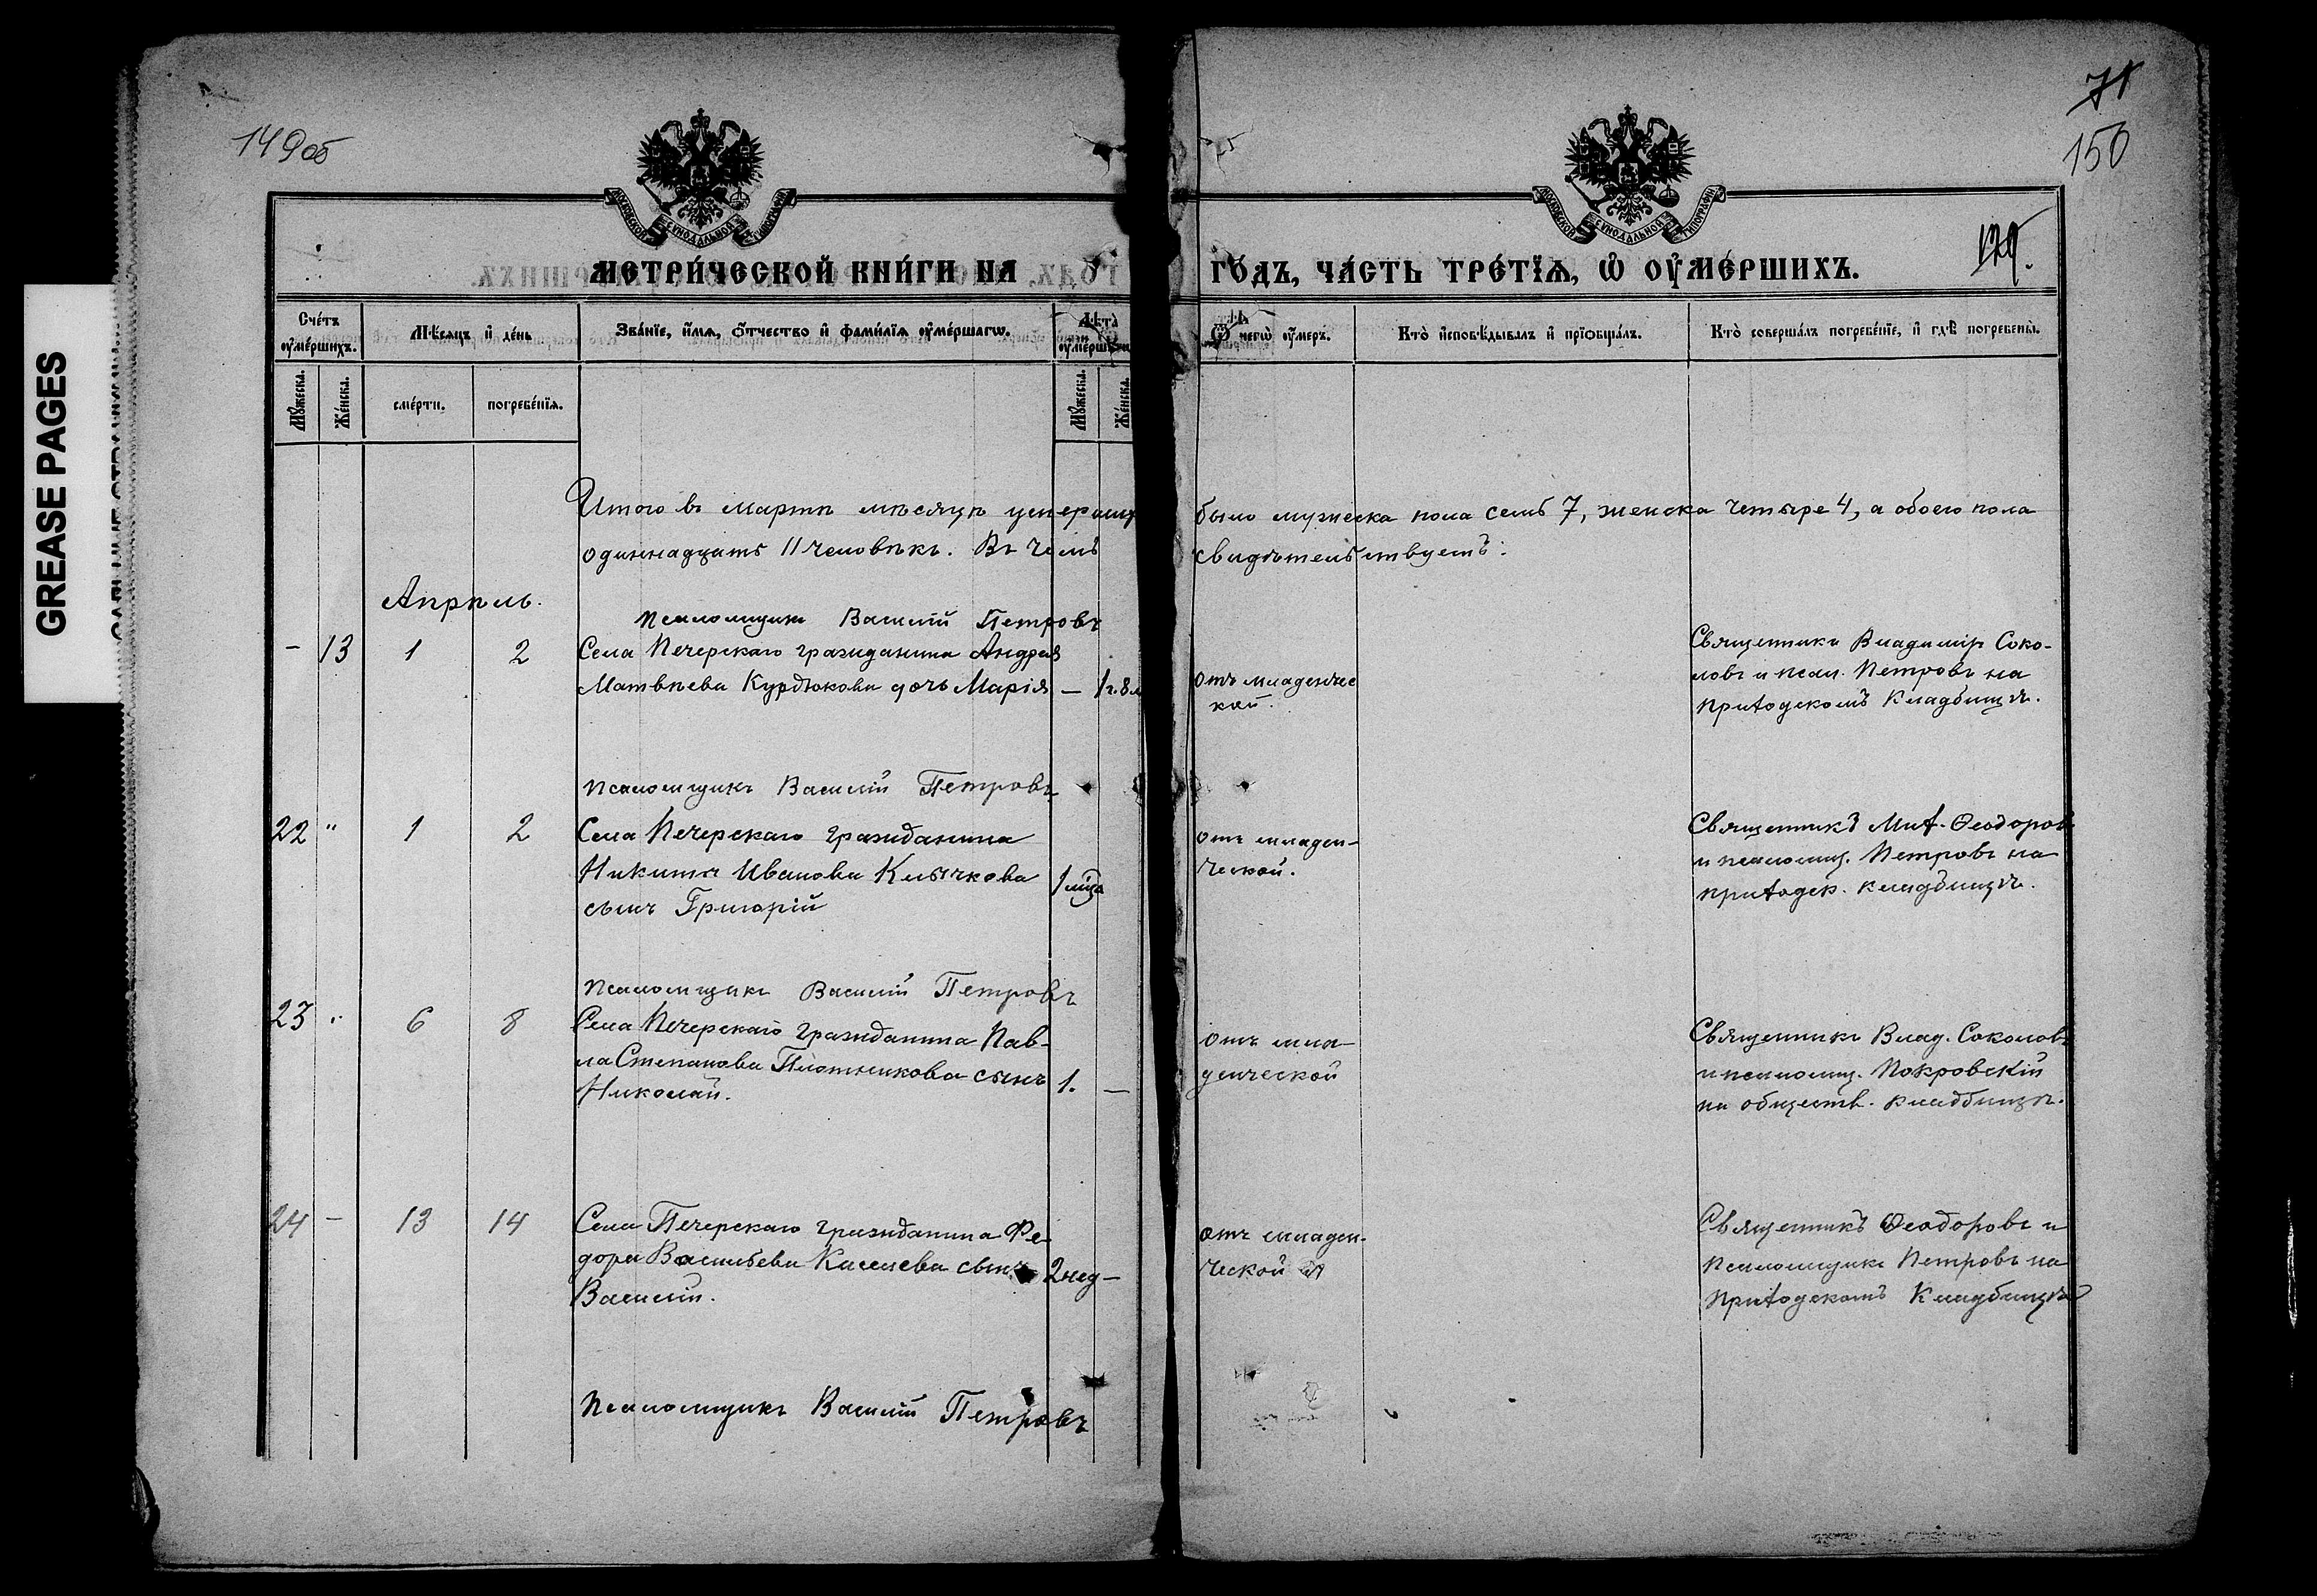 GREASE PAGES
149 об
71
150
129.
МОСКОВСКОЙ СѴНОДАЛЬНОЙ ТИПОГРАФІИ
МОСКОВСКОЙ СѴНОДАЛЬНОЙ ТИПОГРАФІИ
МЕТРИ́ЧЕСКОЙ КНИ́ГИ НА
ГО́ДЪ, ЧА́СТЬ ТРЕ́ТЇѦ, Ѡ҆ ОУ҆МЕ́РШИХЪ.
Сче́тъ оу҆ме́ршихъ.
Мѣ́сяцъ и҆ де́нь
Зва́нїе, и҆́мѧ, ѻ҆́тчество и҆ фами́лїѧ оу҆ме́ршагѡ.
Лѣ́та оу҆ме́рш
Ѿ чегѡ̀ оу҆́меръ.
Кто̀ и҆сповѣ́дывалъ и҆ прїѻбща́лъ.
Кто̀ соверша́лъ погребе́нїе, и҆ гдѣ̀ погребены̀.
Мꙋ́жеска.
Же́нска.
сме́рти.
погребе́нїѧ.
Мꙋ́жеска.
Же́нска.
Итого въ Мартѣ мѣсяцѣ умерших было мужеска пола семь 7, женска четыре 4, а обоего пола
одиннадцать 11 человѣкъ. Въ чемъ свидѣтельствуетъ:
Апрѣль.
Псаломщикъ Василій Петровъ
– 13 1 2 Села Печерскаго гражданина Андрея
Матвѣева Курдюкова дочь Марія – 1 г. 8 м
отъ младенче
ской.
Священникъ Владиміръ Соко-
ловъ и псал. Петровъ на
приходскомъ кладбищѣ.
Псаломщикъ Василій Петровъ
22 " 1 2 Села Печерскаго гражданина
Никиты Иванова Клычкова
сынъ Григорій
1 мца
отъ младен-
ческой.
Священникъ Мих. Ѳеодоров
и псаломщ. Петровъ на
приходск. кладбищѣ.
Псаломщикъ Василій Петровъ
23 " 6 8 Села Печерскаго гражданина Пав-
ла Степанова Плотникова сынъ 1. –
Николай.
отъ мла-
денческой
Священникъ Влад. Соколовъ
и псаломщ. Покровскій
на обществ. кладбищѣ.
24 – 13 14 Села Печерскаго гражданина Фе-
дора Васильева Киселева сынъ 2 нед –
Василій.
отъ младен-
ческой
Священникъ Ѳеодоровъ и
псаломщикъ Петровъ на
приходскомъ кладбищѣ
Псаломщикъ Василій Петровъ